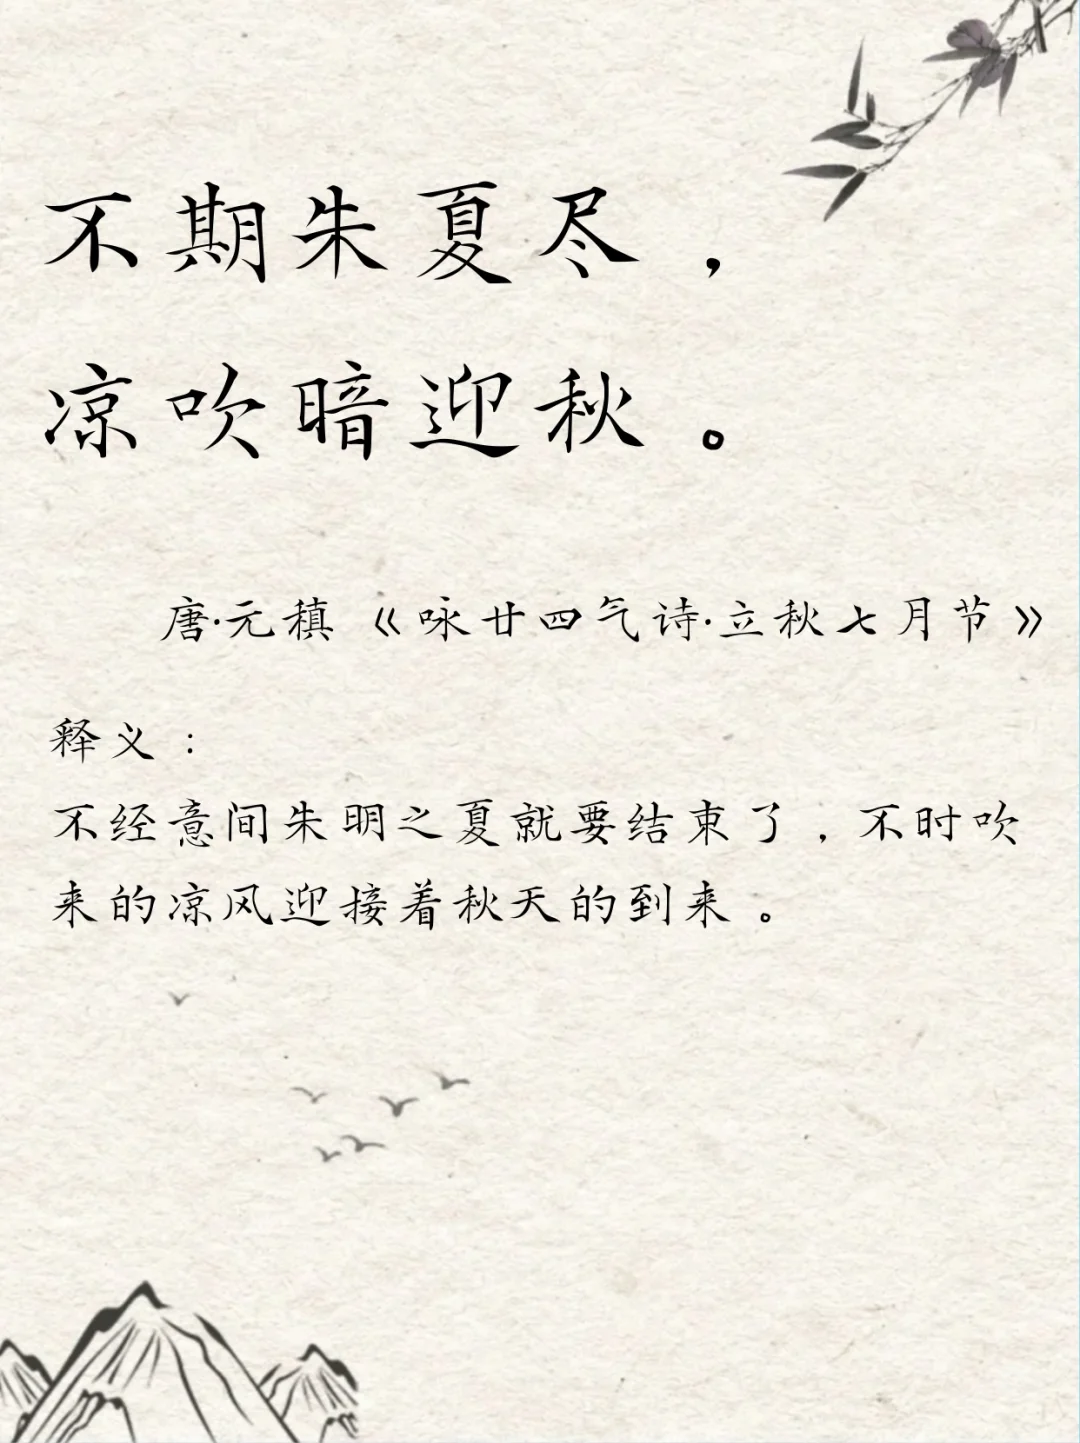 不期朱夏尽，
凉吹暗迎秋。
唐·元稹《咏廿四气诗·立秋七月节》
释义：
不经意间朱明之夏就要结束了，不时吹
来的凉风迎接着秋天的到来。